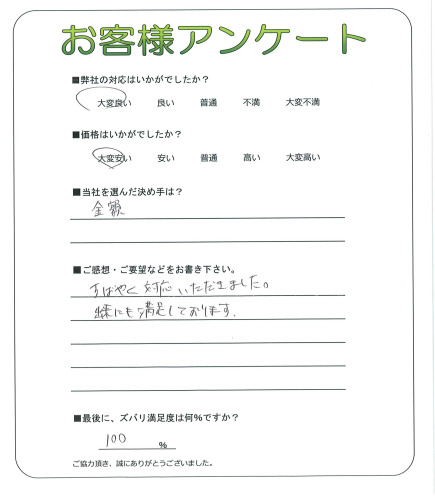 お客様アンケート
■弊社の対応はいかがでしたか？
大変良い 良い 普通 不満 大変不満
■価格はいかがでしたか？
大変安い 安い 普通 高い 大変高い
■当社を選んだ決め手は？
金額
■ご感想・ご要望などをお書き下さい。
すばやく対応いただきました。
にも満足しております.
■最後に、ズバリ満足度は何％ですか？
100 ％
ご協力頂き、誠にありがとうございました。